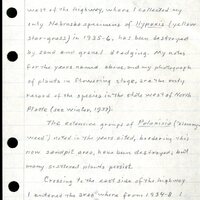 west of the highway, where I collected my
only Nebraska specimens of Hypoxis (yellow
star-grass) in 1935-6, has been destroyed
by sand and gravel dredging. My notes
for the years named above, and my photograph
of plants in flowering stage, are the only
record of the species in the state west of North
Platte (see Winter, 1936).
The extensive groups of Polanisia ("clammy-
weed") noted in the years cited, bordering my
now sandpit area, have been destroyed; but
many scattered plants persist.
Crossing to the east side of the highway
I entered the area where from 1934-8 I